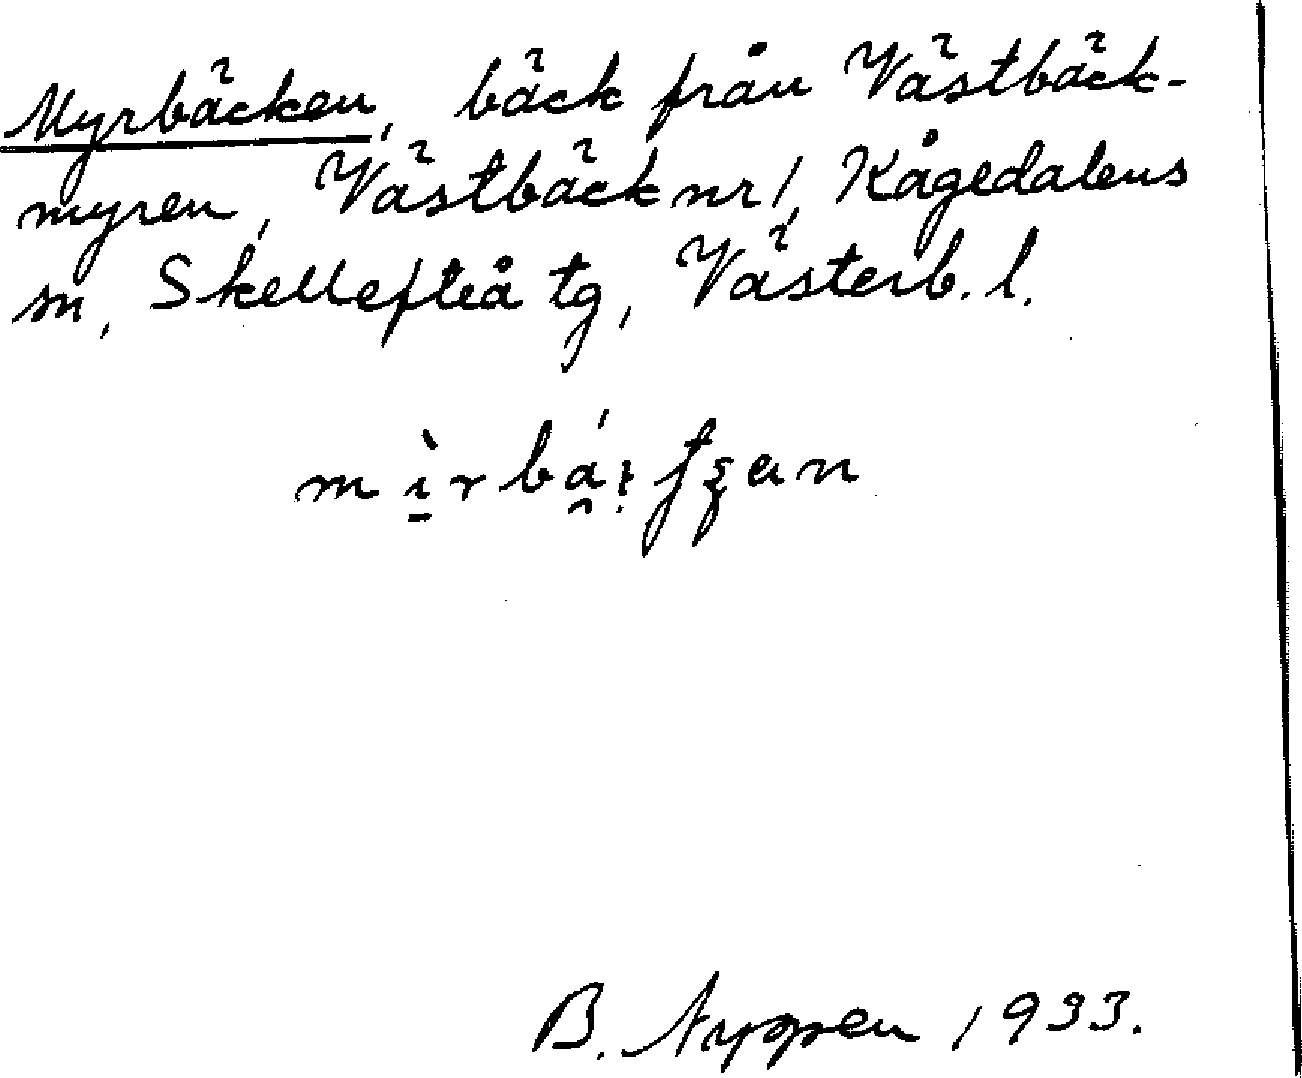 Myrbäcken, bäck från Västbäck-
myren, Västbäck nr 1, Kågedalens
sn, Skellefteå tg, Västerb. l.
B. Nyman 1933.